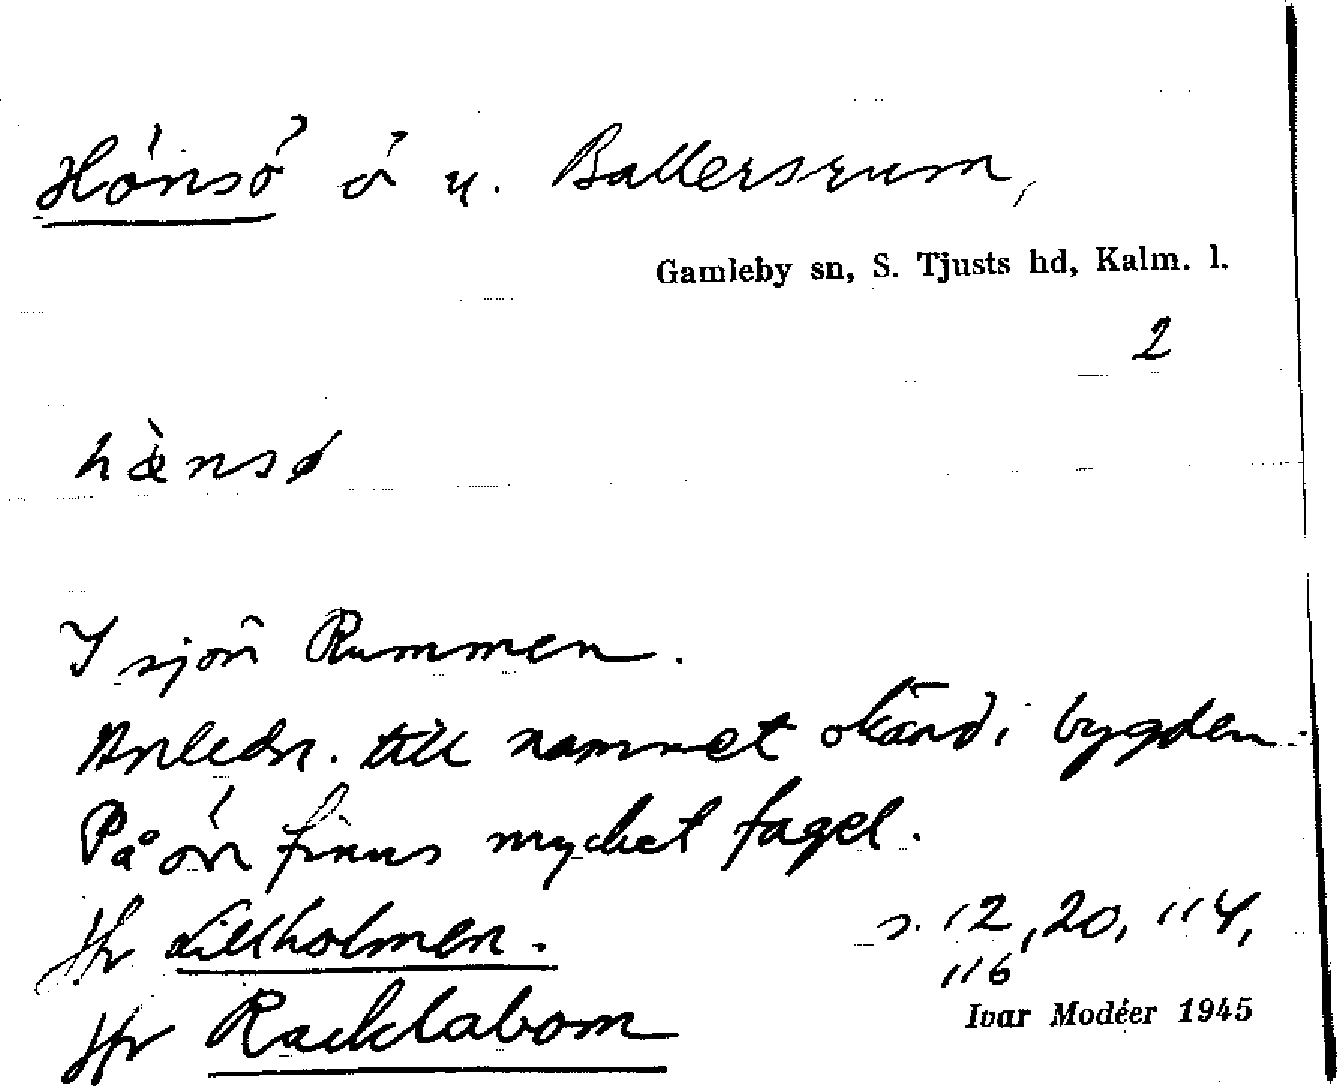 Hönsö ö u. Ballersrum,
Gamleby sn, S. Tjusts hd, Kalm. l.
2
hæ̀nsø
I sjön Rummen.
Anledn. till namnet okänd i bygden.
På ön finns mycket fågel.
Jfr Lillholmen.
s. 12, 20, 114,
116
Jfr Racklabom
Ivar Modéer 1945